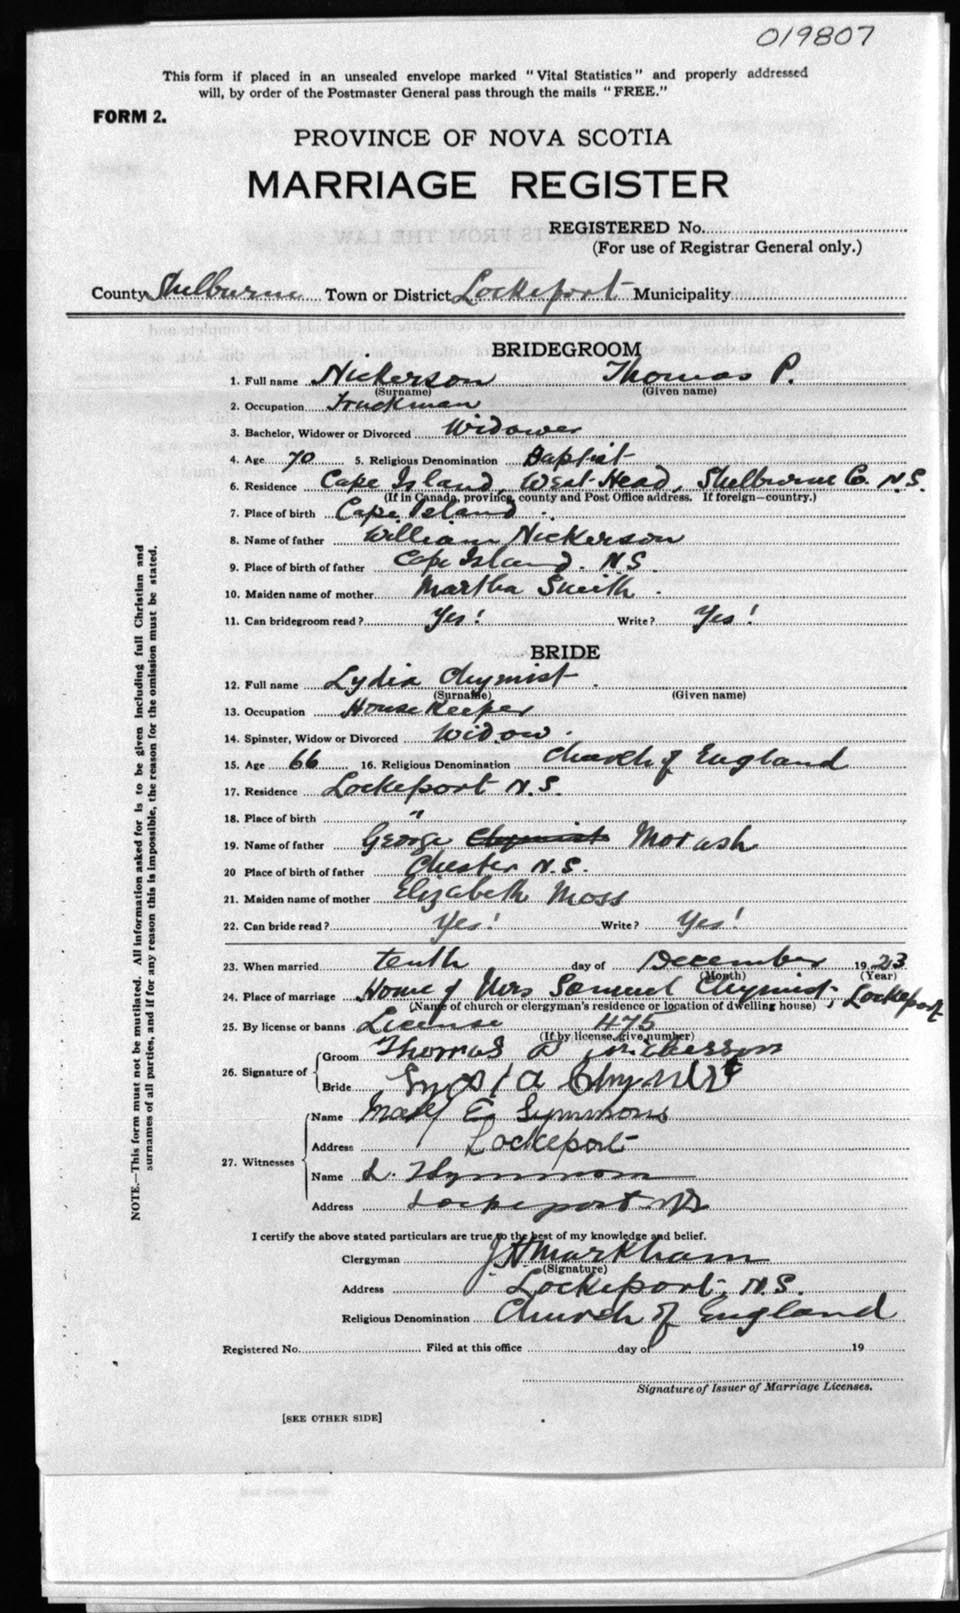 019807
This form if placed in an unsealed envelope marked "Vital Statistics" and properly addressed
will, by order of the Postmaster General pass through the mails "FREE."
FORM 2.
PROVINCE OF NOVA SCOTIA
MARRIAGE REGISTER
REGISTERED No.
(For use of Registrar General only.)
County Shelburne Town or District Lockeport Municipality
BRIDEGROOM
1. Full name Nickerson Thomas P.
(Surname) (Given name)
2. Occupation Truckman
3. Bachelor, Widower or Divorced Widower
4. Age 70 5. Religious Denomination Baptist
6. Residence Cape Island, West Head, Shelburne Co. N.S.
(If in Canada, province, county and Post Office address. If foreign—country.)
7. Place of birth Cape Island.
8. Name of father William Nickerson
9. Place of birth of father Cape Island. N.S.
10. Maiden name of mother Martha Smith.
11. Can bridegroom read? Yes! Write? Yes!
BRIDE
12. Full name Lydia Chymist.
(Surname) (Given name)
13. Occupation House Keeper
14. Spinster, Widow or Divorced Widow.
15. Age 66 16. Religious Denomination Church of England
17. Residence Lockeport N.S.
18. Place of birth "
19. Name of father George Chymist Morash
20 Place of birth of father Chester N.S.
21. Maiden name of mother Elizabeth Moss
22. Can bride read? Yes! Write? Yes!
23. When married tenth day of December 1923
(Month) (Year)
24. Place of marriage Home of Mrs Samuel Chymist, Lockeport
(Name of church or clergyman's residence or location of dwelling house)
25. By license or banns License 475
(If by license, give number)
26. Signature of
Groom Thomas P Nickerson
Bride Lydia Chymist
27. Witnesses
Name Mary E Symmons
Address Lockeport
Name
Address Lockeport NS
I certify the above stated particulars are true to the best of my knowledge and belief.
Clergyman J H Markham
(Signature)
Address Lockeport, N.S.
Religious Denomination Church of England
Registered No. Filed at this office day of 19
Signature of Issuer of Marriage Licenses.
[SEE OTHER SIDE]
NOTE.—This form must not be mutilated. All information asked for is to be given including full Christian and
surnames of all parties, and if for any reason this is impossible, the reason for the omission must be stated.